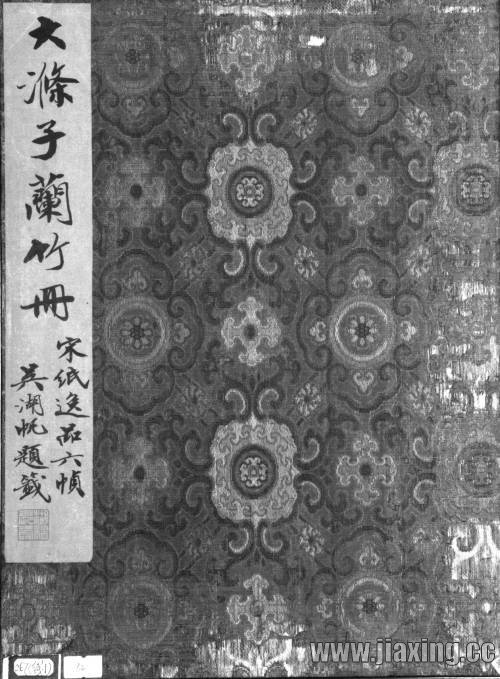 大滌子蘭竹冊
宋紙逸品六幀
吳湖帆題籤
www.jiaxing.cc